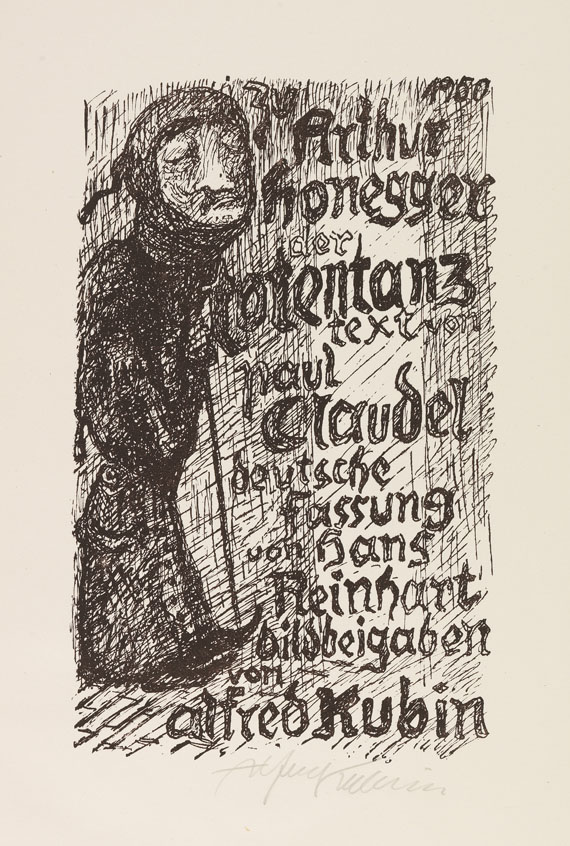 zu 1950
Arthur
Honegger
der
totentanz
text von
paul
Claudel
deutsche
Fassung
von Hans
Reinhart
bildbeigaben
von
alfred Kubin
Alfred Kubin